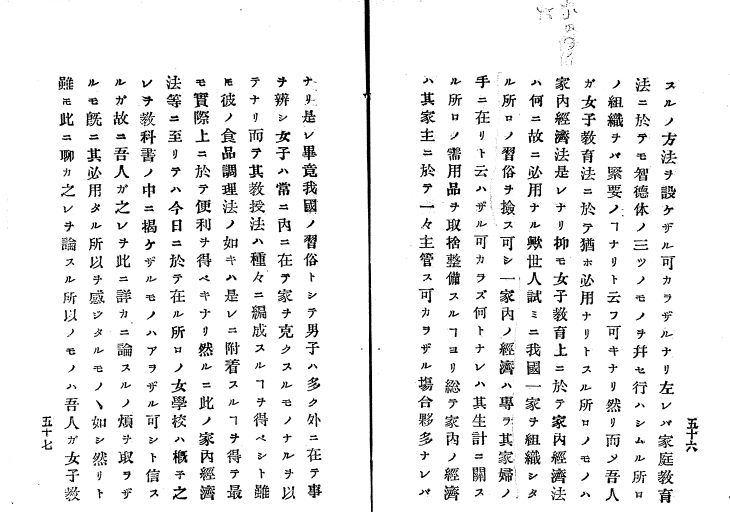 五十六
スルノ方法ヲ設ケザル可カラザルナリ左レバ家庭教育
法ニ於テモ智德体ノ三ツノモノヲ幷セ行ハシムル所ロ
ノ組織ヲバ緊要ノヿナリト云フ可キナリ然リ而メ吾人
ガ女子教育法ニ於テ猶ホ必用ナリトスル所ロノモノハ
家內經濟法是レナリ抑モ女子教育上ニ於テ家內經濟法
ハ何ニ故ニ必用ナル歟世人試ミニ我國一家ヲ組織シタ
ル所ロノ習俗ヲ撿ス可シ一家內ノ經濟ハ專ラ其家婦ノ
手ニ在リト云ハザル可カラズ何トナレバ其生計ニ關ス
ル所ロノ需用品ヲ取捨整備スルヿヨリ総テ家內ノ經濟
ハ其家主ニ於テ一々主管ス可カラザル塲合夥多ナレバ
ナリ是レ畢竟我國ノ習俗トシテ男子ハ多ク外ニ在テ事
ヲ辨シ女子ハ常ニ內ニ在テ家ヲ克クスルモノナルヲ以
テナリ而テ其教授法ハ種々ニ編成スルヿヲ得ベシト雖
モ彼ノ食品調理法ノ如キハ是レニ附着スルヿヲ得テ最
モ實際上ニ於テ便利ヲ得ベキナリ然ルニ此ノ家內經濟
法等ニ至リテハ今日ニ於テ在ル所ロノ女學校ハ概子之
レヲ教科書ノ中ニ揭ケザルモノハアラザル可シト信ス
ルガ故ニ吾人ガ之レヲ此ニ詳カニ論スルノ煩ヲ取ラザ
ルモ旣ニ其必用タル所以ヲ感ジタルモノヽ如シ然リト
雖モ此ニ聊カ之レヲ論スル所以ノモノハ吾人ガ女子教
五十七